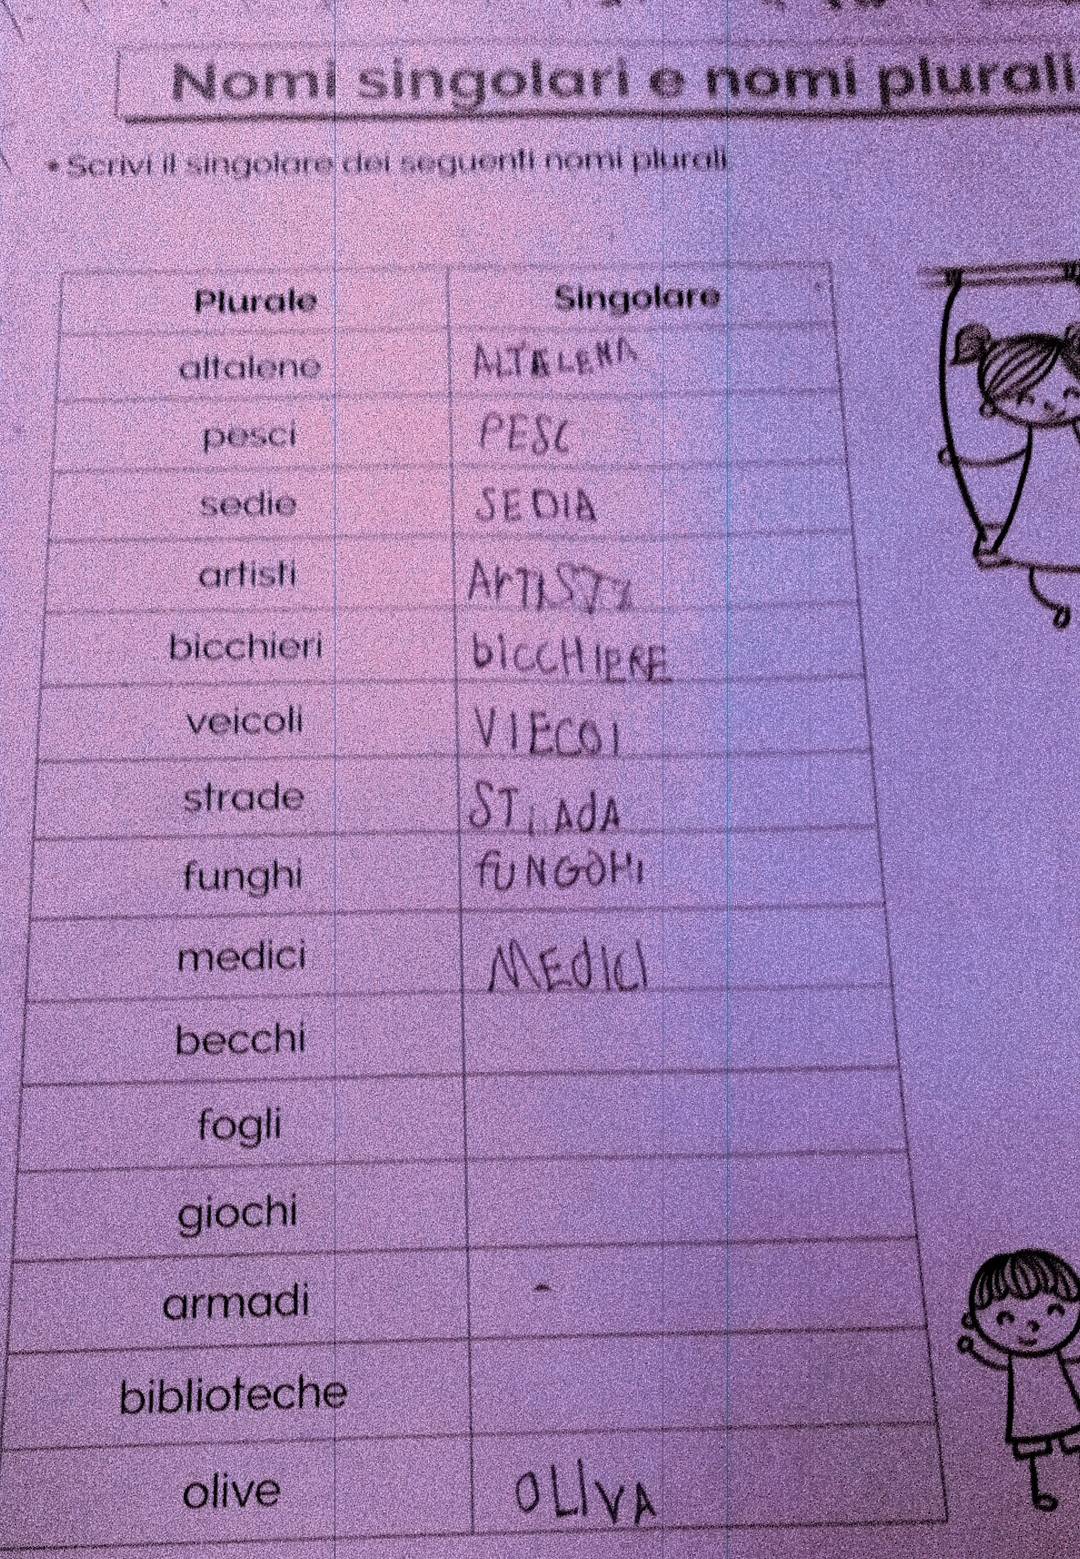 Nomi singolari e nomi plurali
• Scrivi il singolare dei seguenti nomi plurali
Plurale Singolare
altalene ALTALENA
pesci PESC
sedie SEDIA
artisti
bicchieri bICCHIERE
veicoli VIECOI
strade
funghi fUNGOHI
medici MEdICI
becchi
fogli
giochi
armadi
biblioteche
olive OLIVA